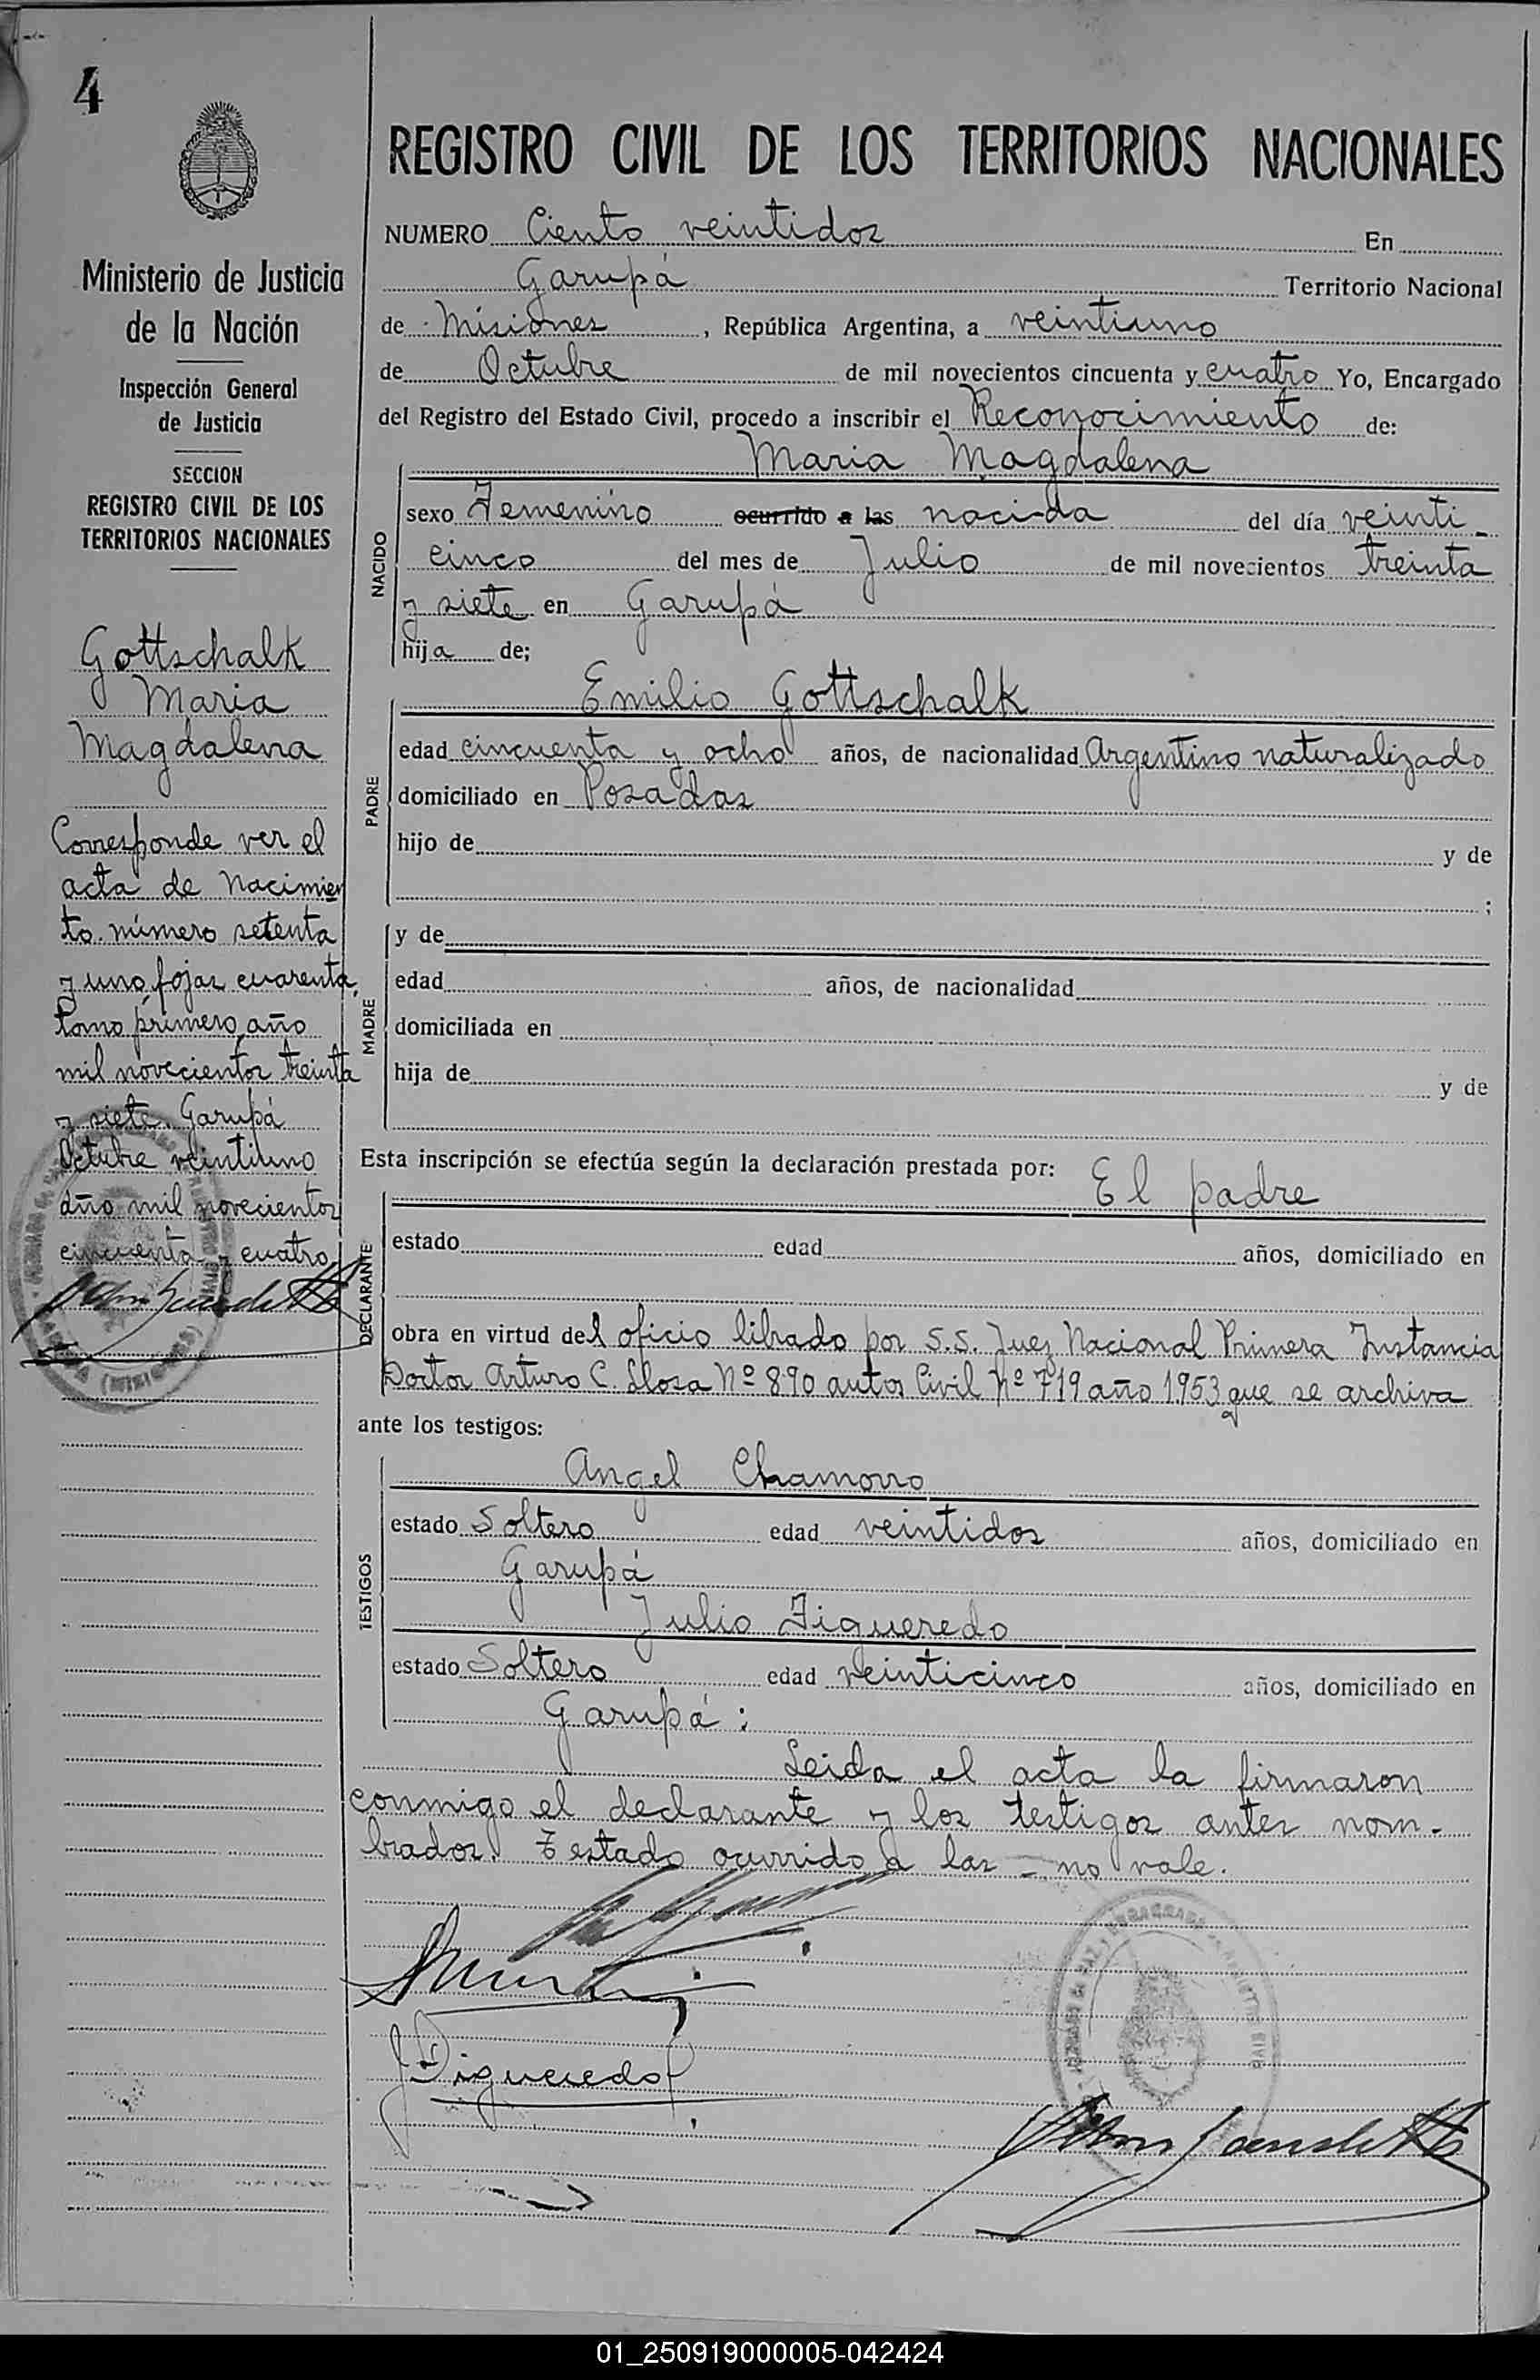 4
Ministerio de Justicia
de la Nación
Inspección General
de Justicia
SECCION
REGISTRO CIVIL DE LOS
TERRITORIOS NACIONALES
Gottschalk
Maria
Magdalena
Corresponde ver el
acta de nacimien
to número setenta
y uno, fojas cuarenta,
tomo primero, año
mil novecientos treinta
y siete. Garupá
Octubre veintiuno
año mil novecientos
cincuenta y cuatro.
REGISTRO CIVIL DE LOS TERRITORIOS NACIONALES
NUMERO Ciento veintidos En
Garupá Territorio Nacional
de Misiones, República Argentina, a veintiuno
de Octubre de mil novecientos cincuenta y cuatro Yo, Encargado
del Registro del Estado Civil, procedo a inscribir el Reconocimiento de:
Maria Magdalena
NACIDO
sexo Femenino ocurrido a las nacida del día veinti-
cinco del mes de Julio de mil novecientos treinta
y siete en Garupá
hija de;
Emilio Gottschalk
PADRE
edad cincuenta y ocho años, de nacionalidad Argentino naturalizado
domiciliado en Posadas
hijo de y de
;
MADRE
y de
edad años, de nacionalidad
domiciliada en
hija de y de
Esta inscripción se efectúa según la declaración prestada por: El padre
DECLARANTE
estado edad años, domiciliado en
obra en virtud del oficio librado por S.S. Juez Nacional Primera Instancia
Doctor Arturo C. Llosa Nº 890 autos Civil Nº 719 año 1953 que se archiva
ante los testigos:
TESTIGOS
Angel Chamorro
estado Soltero edad veintidos años, domiciliado en
Garupá
Julio Figueredo
estado Soltero edad veinticinco años, domiciliado en
Garupá:
Leida el acta la firmaron
conmigo el declarante y los testigos antes nom-
brados. Testado ocurrido a las - no vale.
J Figueredo
01_250919000005-042424